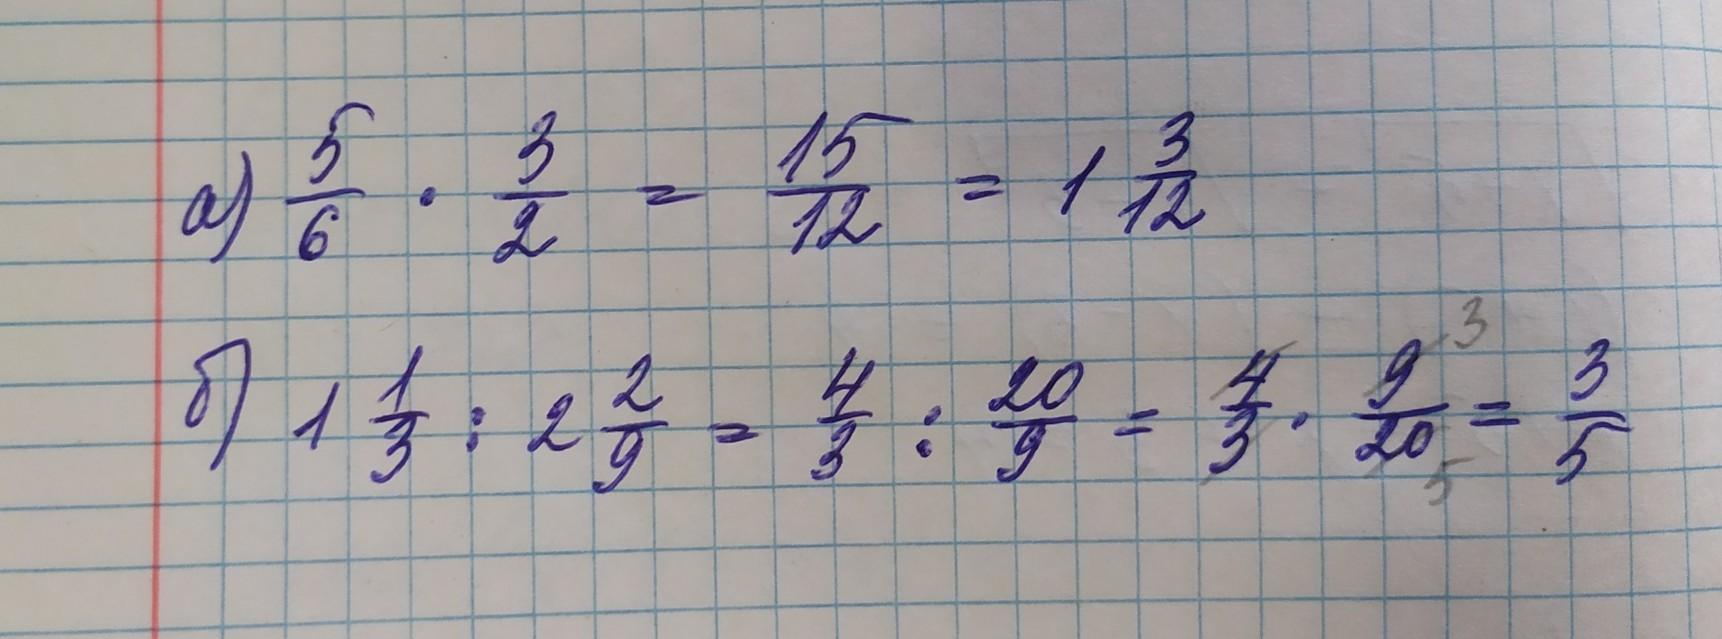 а) 5/6 · 3/2 = 15/12 = 1 3/12
б) 1 1/3 : 2 2/9 = 4/3 : 20/9 = 4/3 · 9/20 = 3/5
3
5